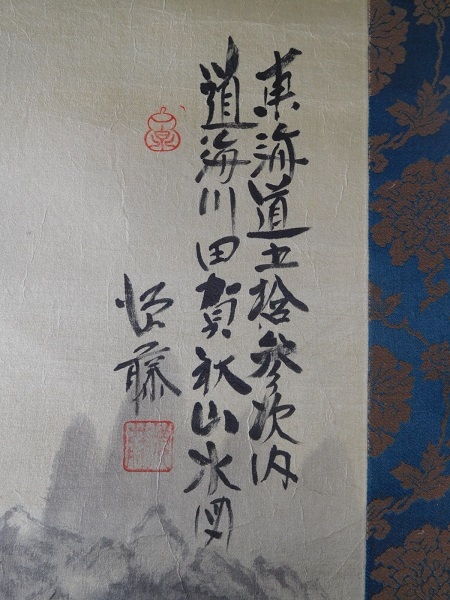 東海道五拾参次内
道海川田賀秋山水図